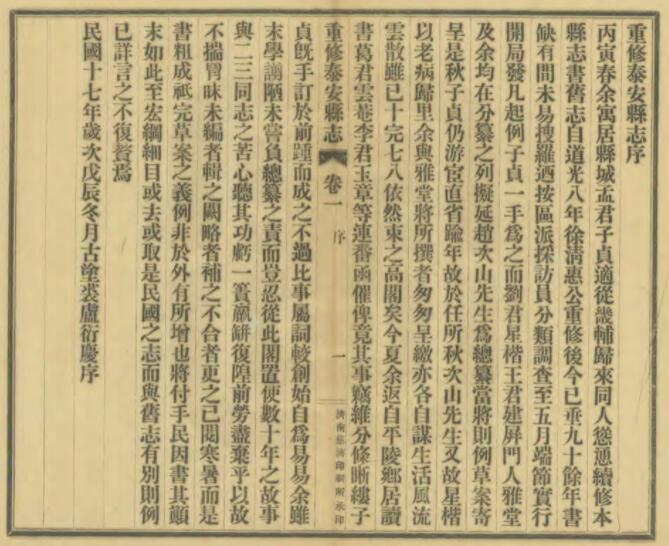 重修泰安縣志序
丙寅春余寓居縣城孟君子貞適從畿輔歸來同人慫慂續修本
縣志書舊志自道光八年徐清惠公重修後今已垂九十餘年書
缺有間未易搜羅迺按區派採訪員分類調查至五月端節實行
開局發凡起例子貞一手爲之而劉君星楷王君建屏門人雅堂
及余均在分纂之列擬延趙次山先生爲總纂當將則例草案寄
呈是秋子貞仍游宦直省踰年故於任所秋次山先生又故星楷
以老病歸里余與雅堂將所撰者匆匆呈繳亦各自謀生活風流
雲散雖已十完七八依然束之高閣矣今夏余返自平陵鄉居讀
書葛君雲菴李君玉章等連番函催俾竟其事竊維分修晰縷子
重修泰安縣志 卷一 序 一 濟南慈濟印刷所承印
貞旣手訂於前踵而成之不過比事屬詞較創始自爲易易余雖
末學謭陋未嘗負總纂之責而豈忍從此閣置使數十年之故事
與二三同志之苦心聽其功虧一簣缾復隍前勞盡棄乎以故
不揣冒昧未編者輯之闕略者補之不合者更之已閱寒暑而是
書粗成祇完草案之義例非於外有所增也將付手民因書其顚
末如此至宏綱細目或去或取是民國之志而與舊志有別則例
已詳言之不復贅焉
民國十七年歲次戊辰冬月古塗裘盧衍慶序